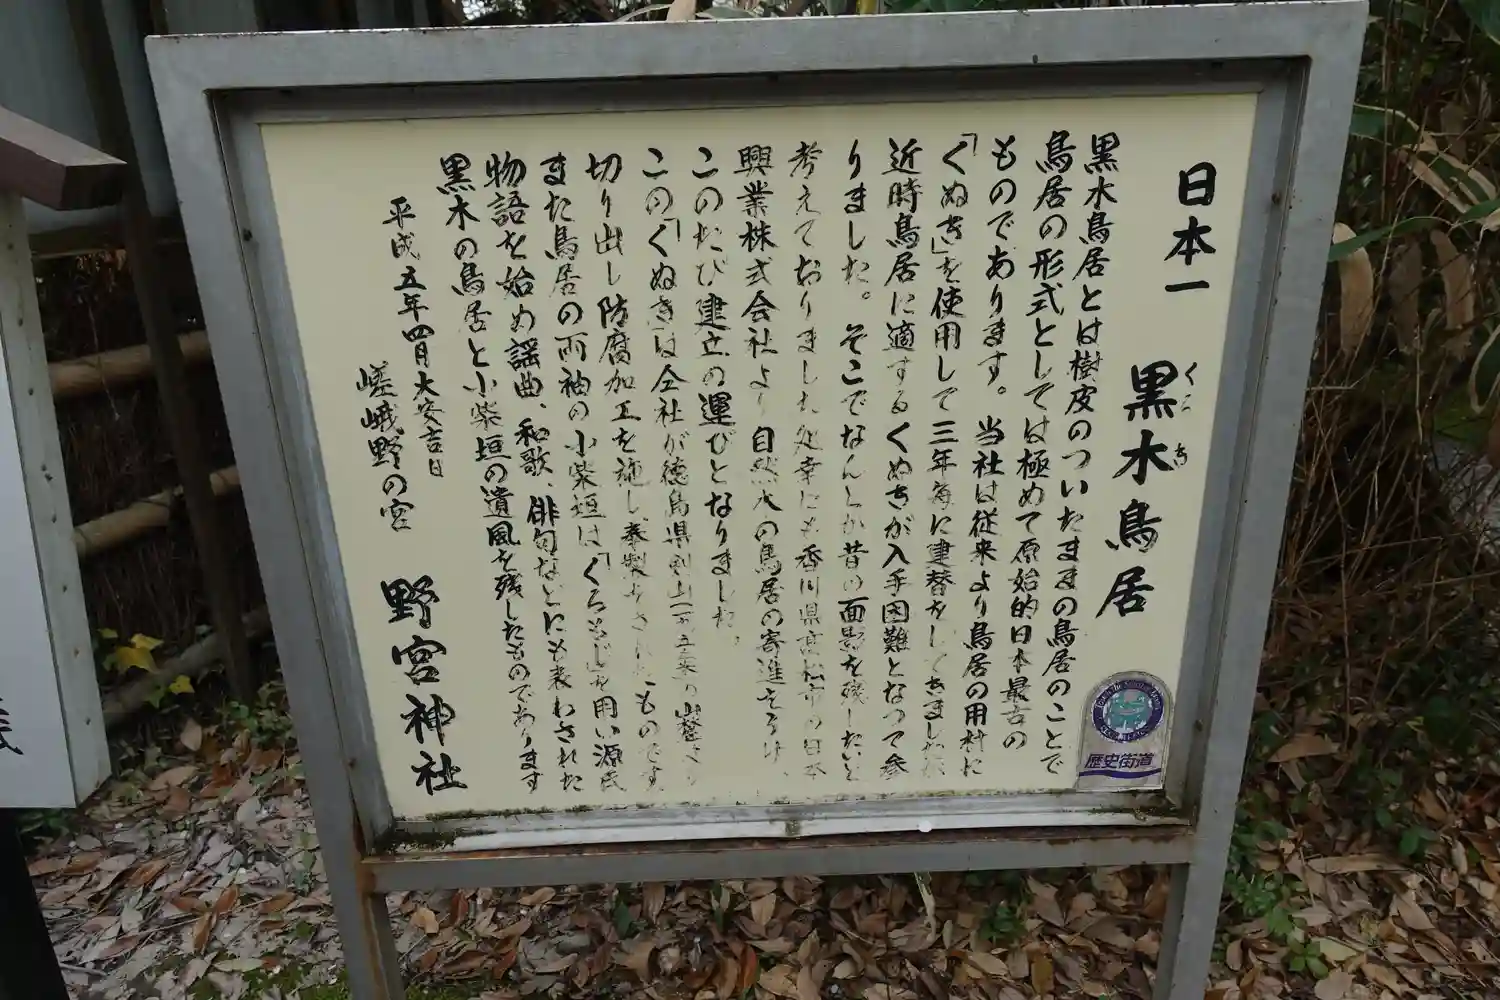 日本一　黒木鳥居
くろき
黒木鳥居とは樹皮のついたままの鳥居のことで
鳥居の形式としては極めて原始的日本最古の
ものであります。当社は従来より鳥居の用材に
「くぬぎ」を使用して三年毎に建替をしてきましたが
近時鳥居に適するくぬぎが入手困難となって参
りました。そこでなんとか昔の面影を残したいと
考えておりました処幸にも香川県高松市の日本
興業株式会社より自然木の鳥居の寄進をうけ、
このたび建立の運びとなりました。
この「くぬぎ」は仝社が徳島県剣山の山麓より
切り出し防腐加工を施し奉製されたものです
また鳥居の両袖の小柴垣は「くろもじ」を用い源氏
物語を始め謡曲、和歌、俳句などにも表わされた
黒木の鳥居と小柴垣の遺風を残したものであります
平成五年四月大安吉日
嵯峨野の宮　野宮神社
歴史街道